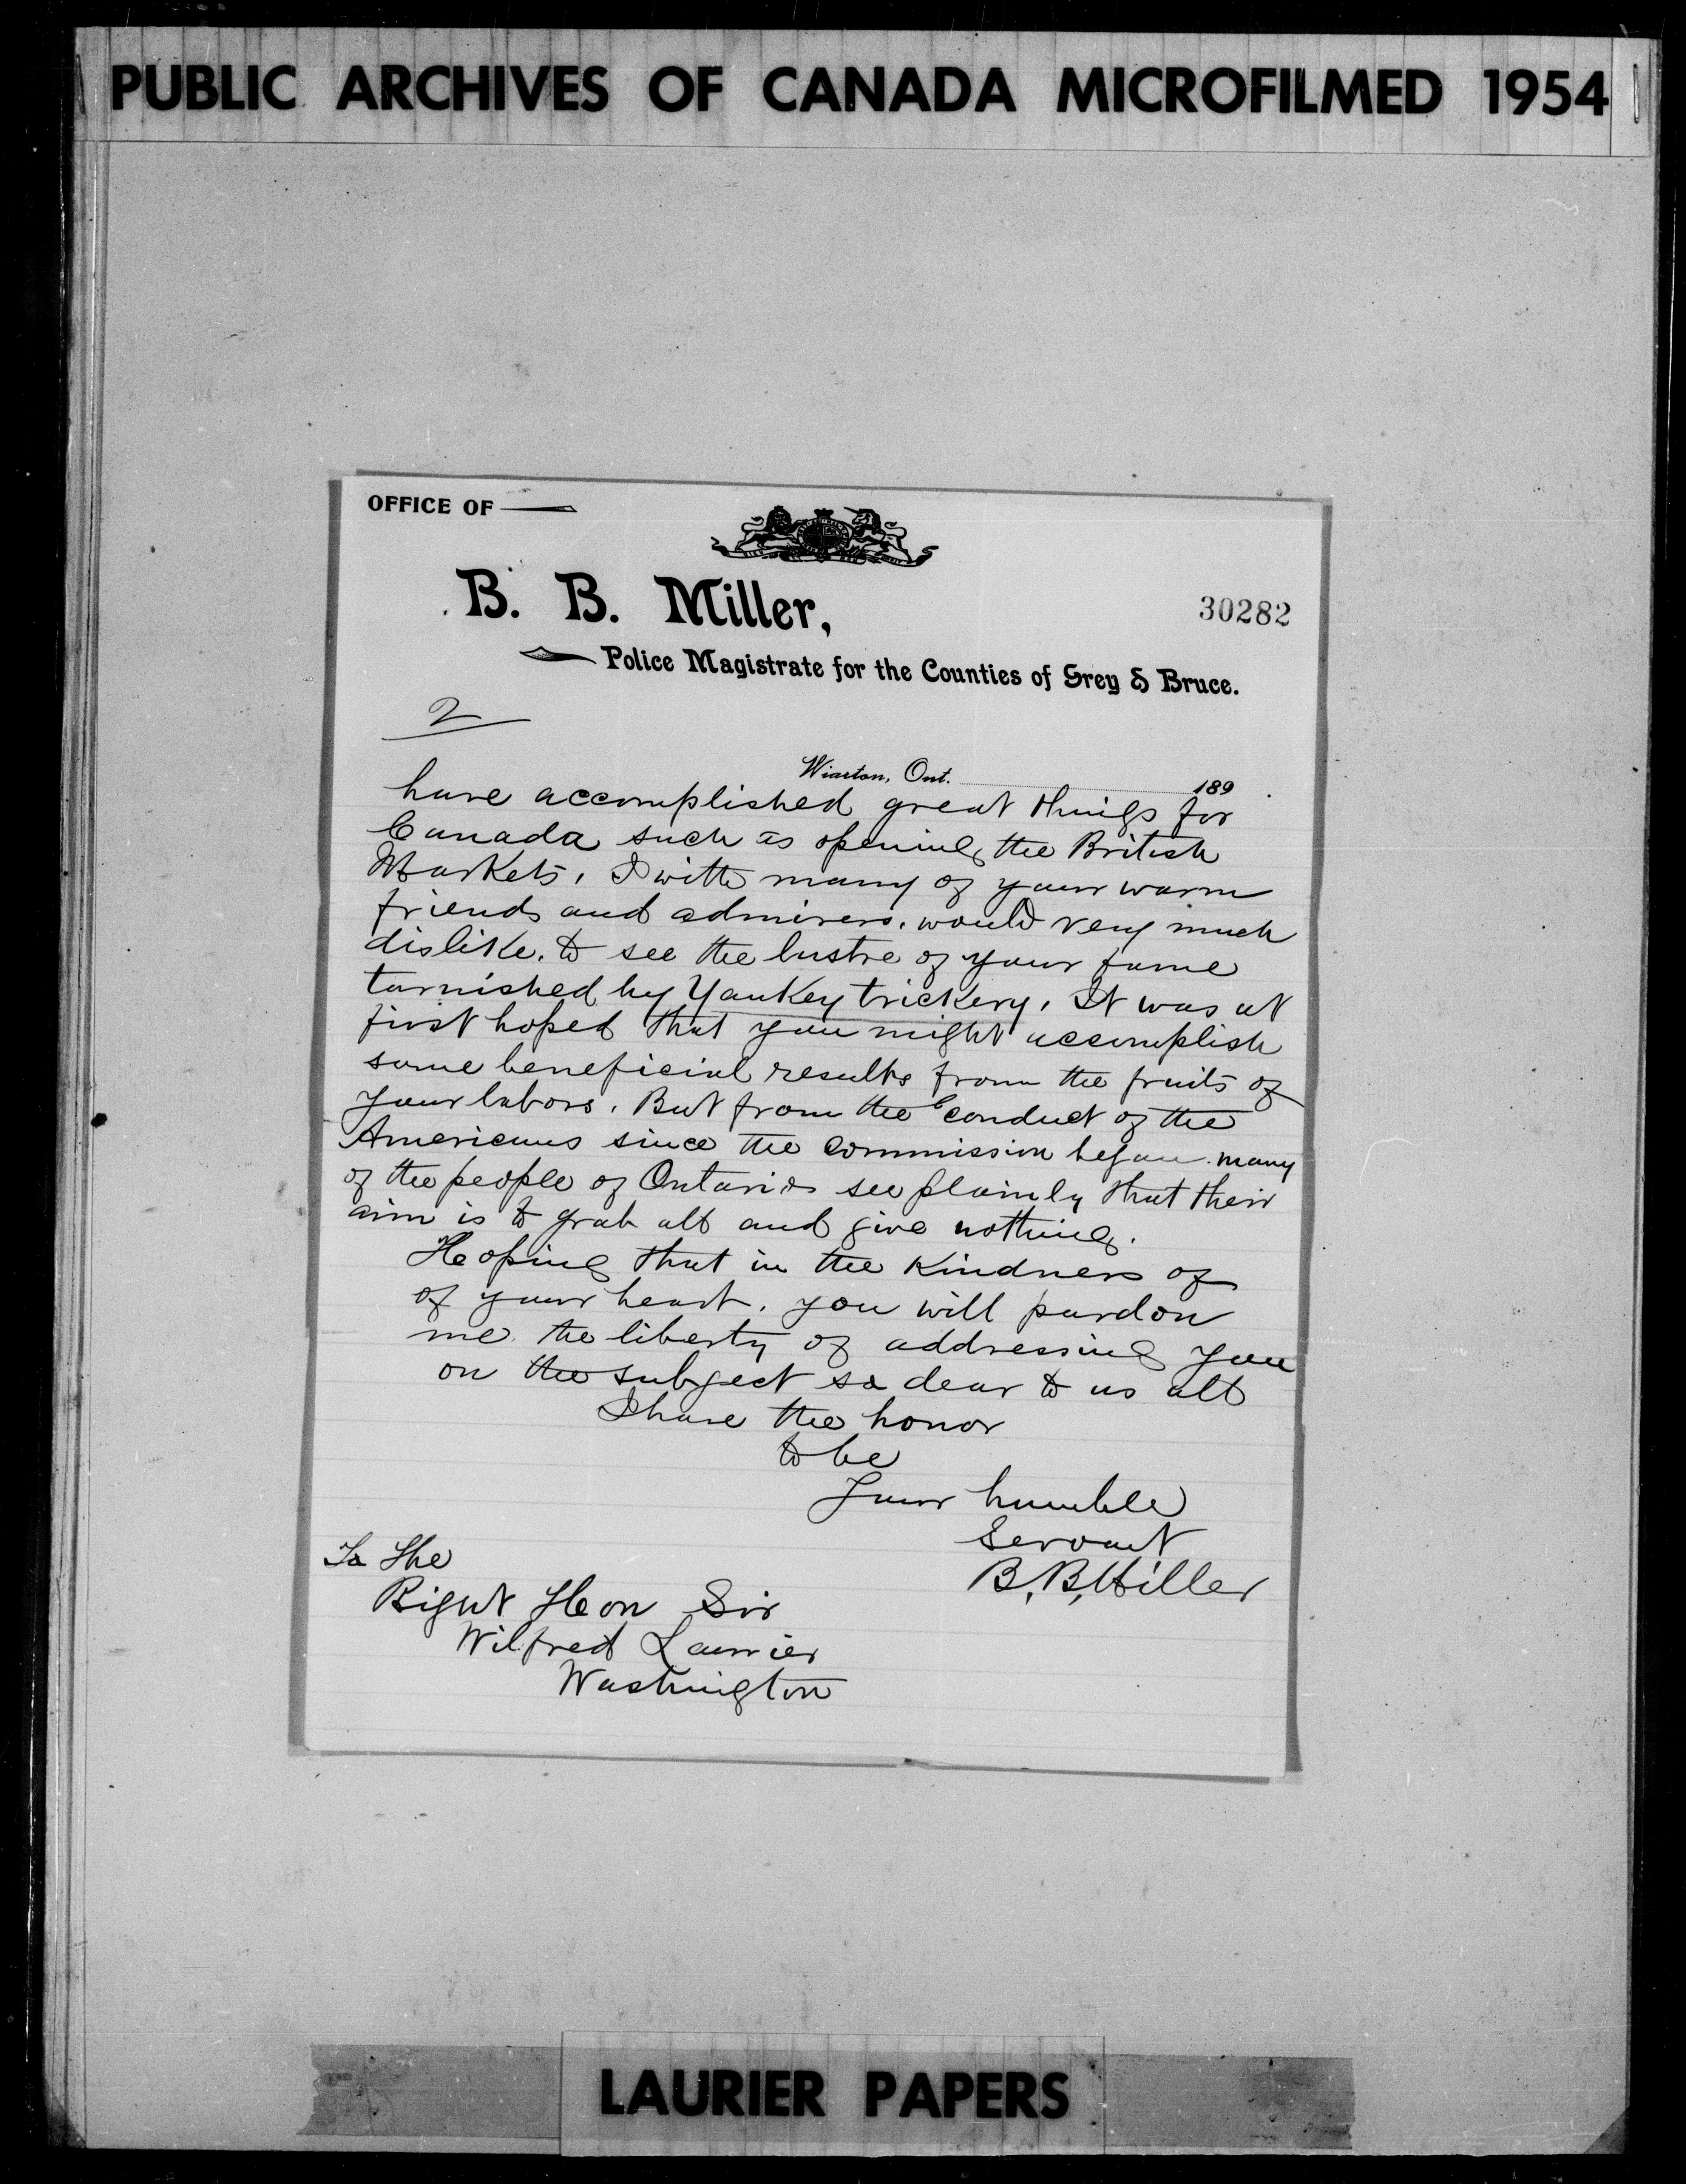 PUBLIC ARCHIVES OF CANADA MICROFILMED 1954
OFFICE OF
B. B. Miller,
30282
Police Magistrate for the Counties of Grey & Bruce.
2
Wiarton, Ont. 189
have accomplished great things for
Canada such as opening the British
Markets. I with many of your warm
friends and admirers. would very much
dislike. to see the lustre of your fame
tarnished by Yankey trickery. It was at
first hoped that you might accomplish
some beneficial results from the fruits of
your labors. But from the conduct of the
Americans since the Commission began many
of the people of Ontario see plainly that their
aim is to grab all and give nothing.
Hoping that in the Kindness of
of your heart. you will pardon
me the liberty of addressing you
on the subject so dear to us all
I have the honor
to be
Your humble
Servant
B. B. Miller
To The
Right Hon Sir
Wilfred Laurier
Washington
LAURIER PAPERS